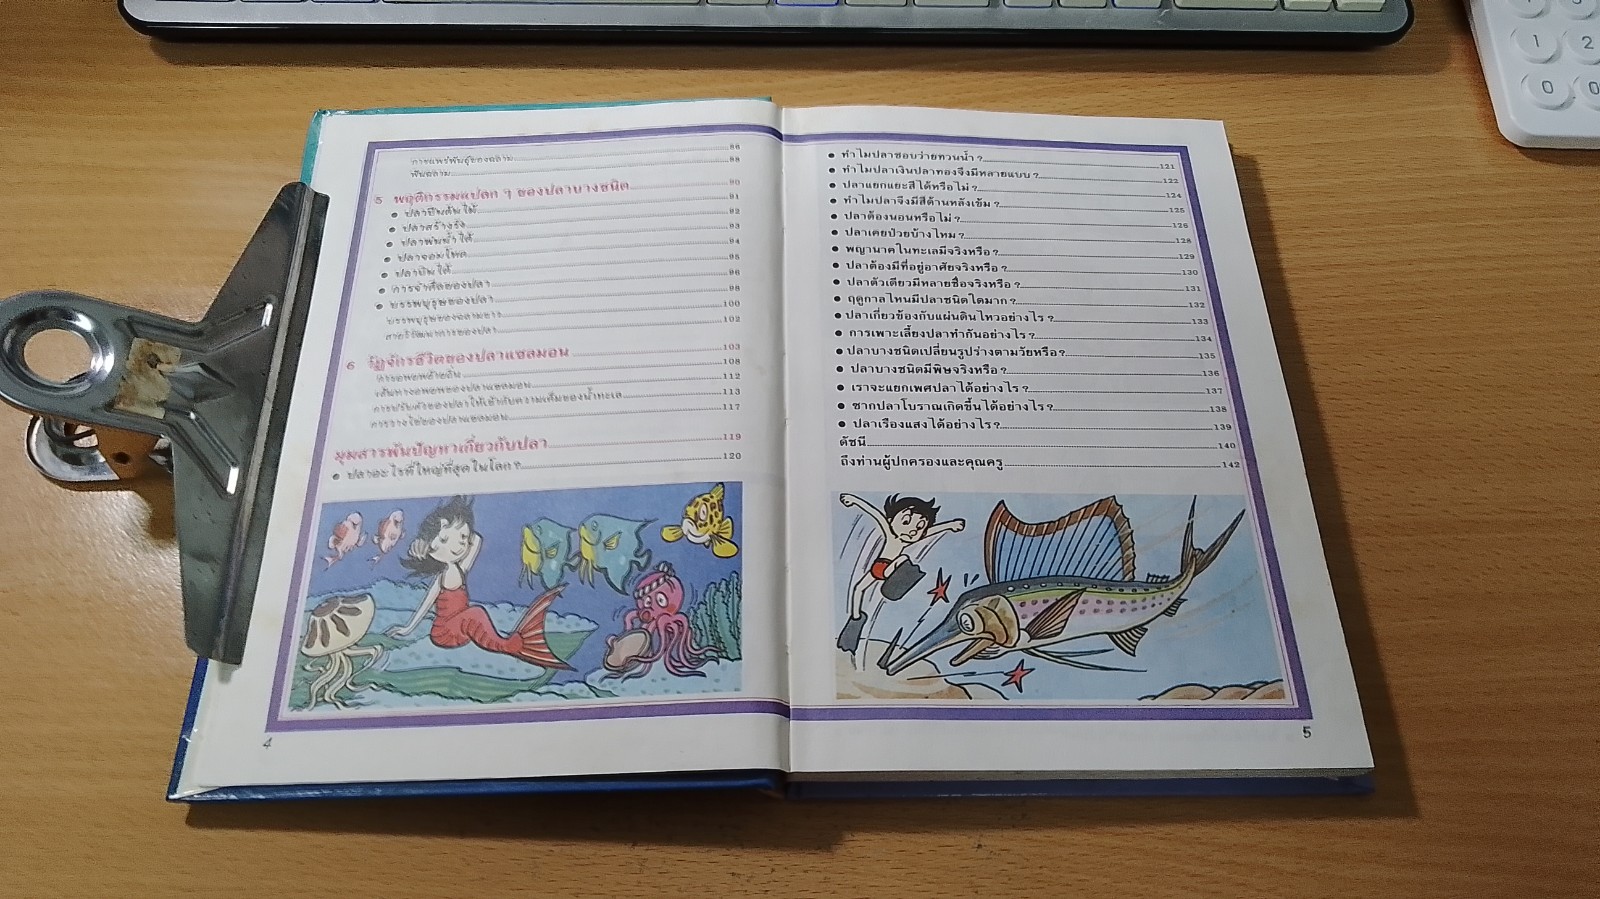 การแพร่พันธุ์ของฉลาม 86
ฟันฉลาม 88
5 พฤติกรรมแปลก ๆ ของปลาบางชนิด 90
● ปลาปีนต้นไม้ 91
● ปลาสร้างรัง 92
● ปลาพ่นน้ำได้ 93
● ปลาจอมโหด 94
● ปลาบินได้ 95
● การจำศีลของปลา 96
● บรรพบุรุษของปลา 98
บรรพบุรุษของฉลามขาว 100
สายวิวัฒนาการของปลา 102
6 วัฏจักรชีวิตของปลาแซลมอน 103
การอพยพย้ายถิ่น 108
เส้นทางอพยพของปลาแซลมอน 112
การปรับตัวของปลาให้เข้ากับความเค็มของน้ำทะเล 113
การวางไข่ของปลาแซลมอน 117
มุมสารพันปัญหาเกี่ยวกับปลา 119
● ปลาอะไรที่ใหญ่ที่สุดในโลก? 120
4
● ทำไมปลาชอบว่ายทวนน้ำ? 121
● ทำไมปลาเงินปลาทองจึงมีหลายแบบ? 122
● ปลาแยกแยะสีได้หรือไม่? 124
● ทำไมปลาจึงมีสีด้านหลังเข้ม? 125
● ปลาต้องนอนหรือไม่? 126
● ปลาเคยป่วยบ้างไหม? 128
● พญานาคในทะเลมีจริงหรือ? 129
● ปลาต้องมีที่อยู่อาศัยจริงหรือ? 130
● ปลาตัวเดียวมีหลายชื่อจริงหรือ? 131
● ฤดูกาลไหนมีปลาชนิดใดมาก? 132
● ปลาเกี่ยวข้องกับแผ่นดินไหวอย่างไร? 133
● การเพาะเลี้ยงปลาทำกันอย่างไร? 134
● ปลาบางชนิดเปลี่ยนรูปร่างตามวัยหรือ? 135
● ปลาบางชนิดมีพิษจริงหรือ? 136
● เราจะแยกเพศปลาได้อย่างไร? 137
● ซากปลาโบราณเกิดขึ้นได้อย่างไร? 138
● ปลาเรืองแสงได้อย่างไร? 139
ดัชนี 140
ถึงท่านผู้ปกครองและคุณครู 142
5
1 2
0 0